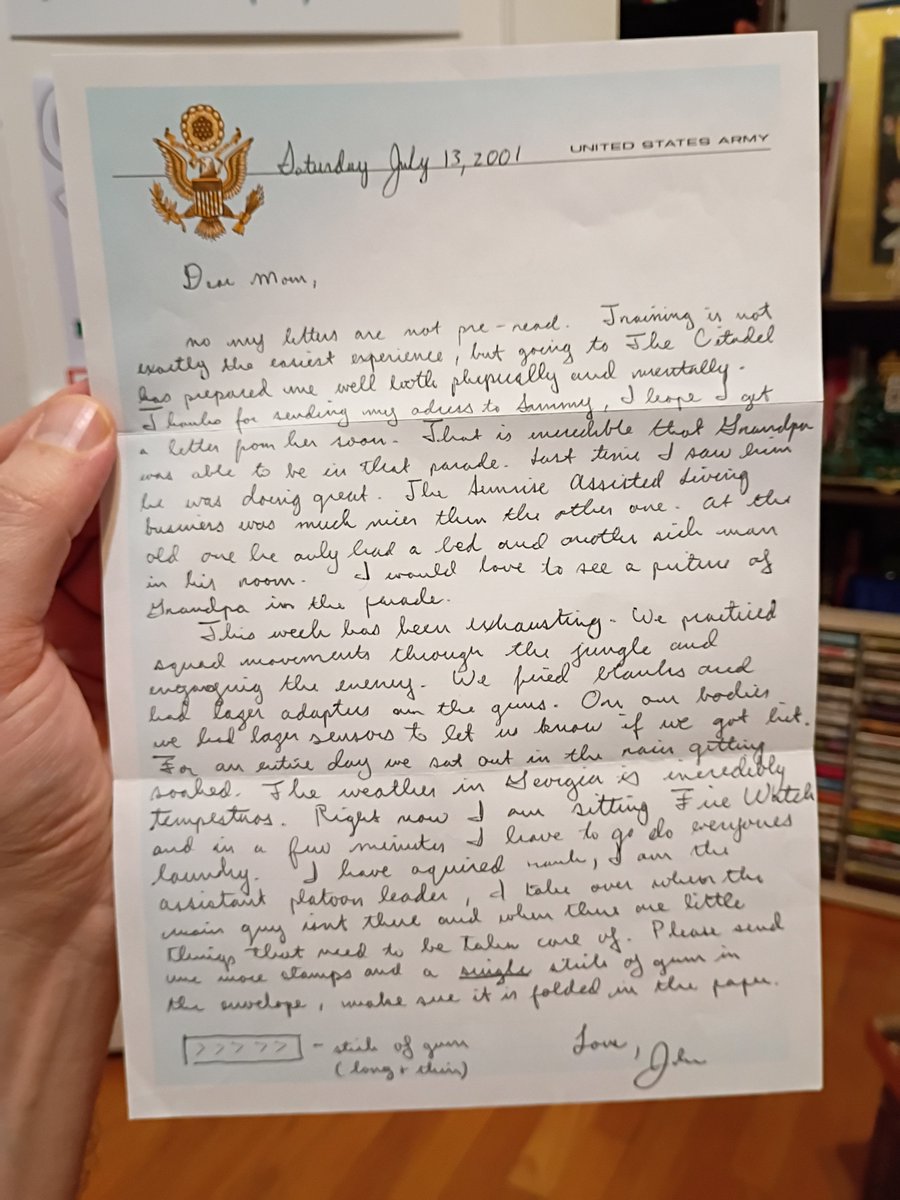 Saturday July 13, 2001
UNITED STATES ARMY
Dear Mom,
no my letters are not pre-read. Training is not
exactly the easiest experience, but going to The Citadel
has prepared me well both phepically and mentally.
Thanks for sending my adress to Sammy, I hope I get
a letter from her soon. That is incredible that Grandpa
was able to be in that parade. Last time I saw him
he was doing great. The Sunrise Assisted Living
business was much nicer then the other one. At the
old one he only had a bed and another sick man
in his room. I would love to see a picture of
Grandpa in the parade.
This week has been exhausting. We practiced
squad movements through the jungle and
engaging the enemy. We fired blanks and
had lazer adapters on the guns. On our bodies
we had lazer sensors to let us know if we got hit.
For an entire day we sat out in the rain getting
soaked. The weather in Georgia is incredibly
tempestuos. Right now I am sitting Fire Watch
and in a few minutes I have to go do everyones
laundry. I have aquired rank, I am the
assistant platoon leader, I take over when the
main guy isnt there and when there are little
things that need to be taken care of. Please send
me more stamps and a single stick of gum in
the envelope, make sure it is folded in the paper.
>>>>> - stick of gum
(long + thin)
Love, John